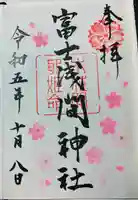 奉拝
富士浅間神社
令和五年十月八日